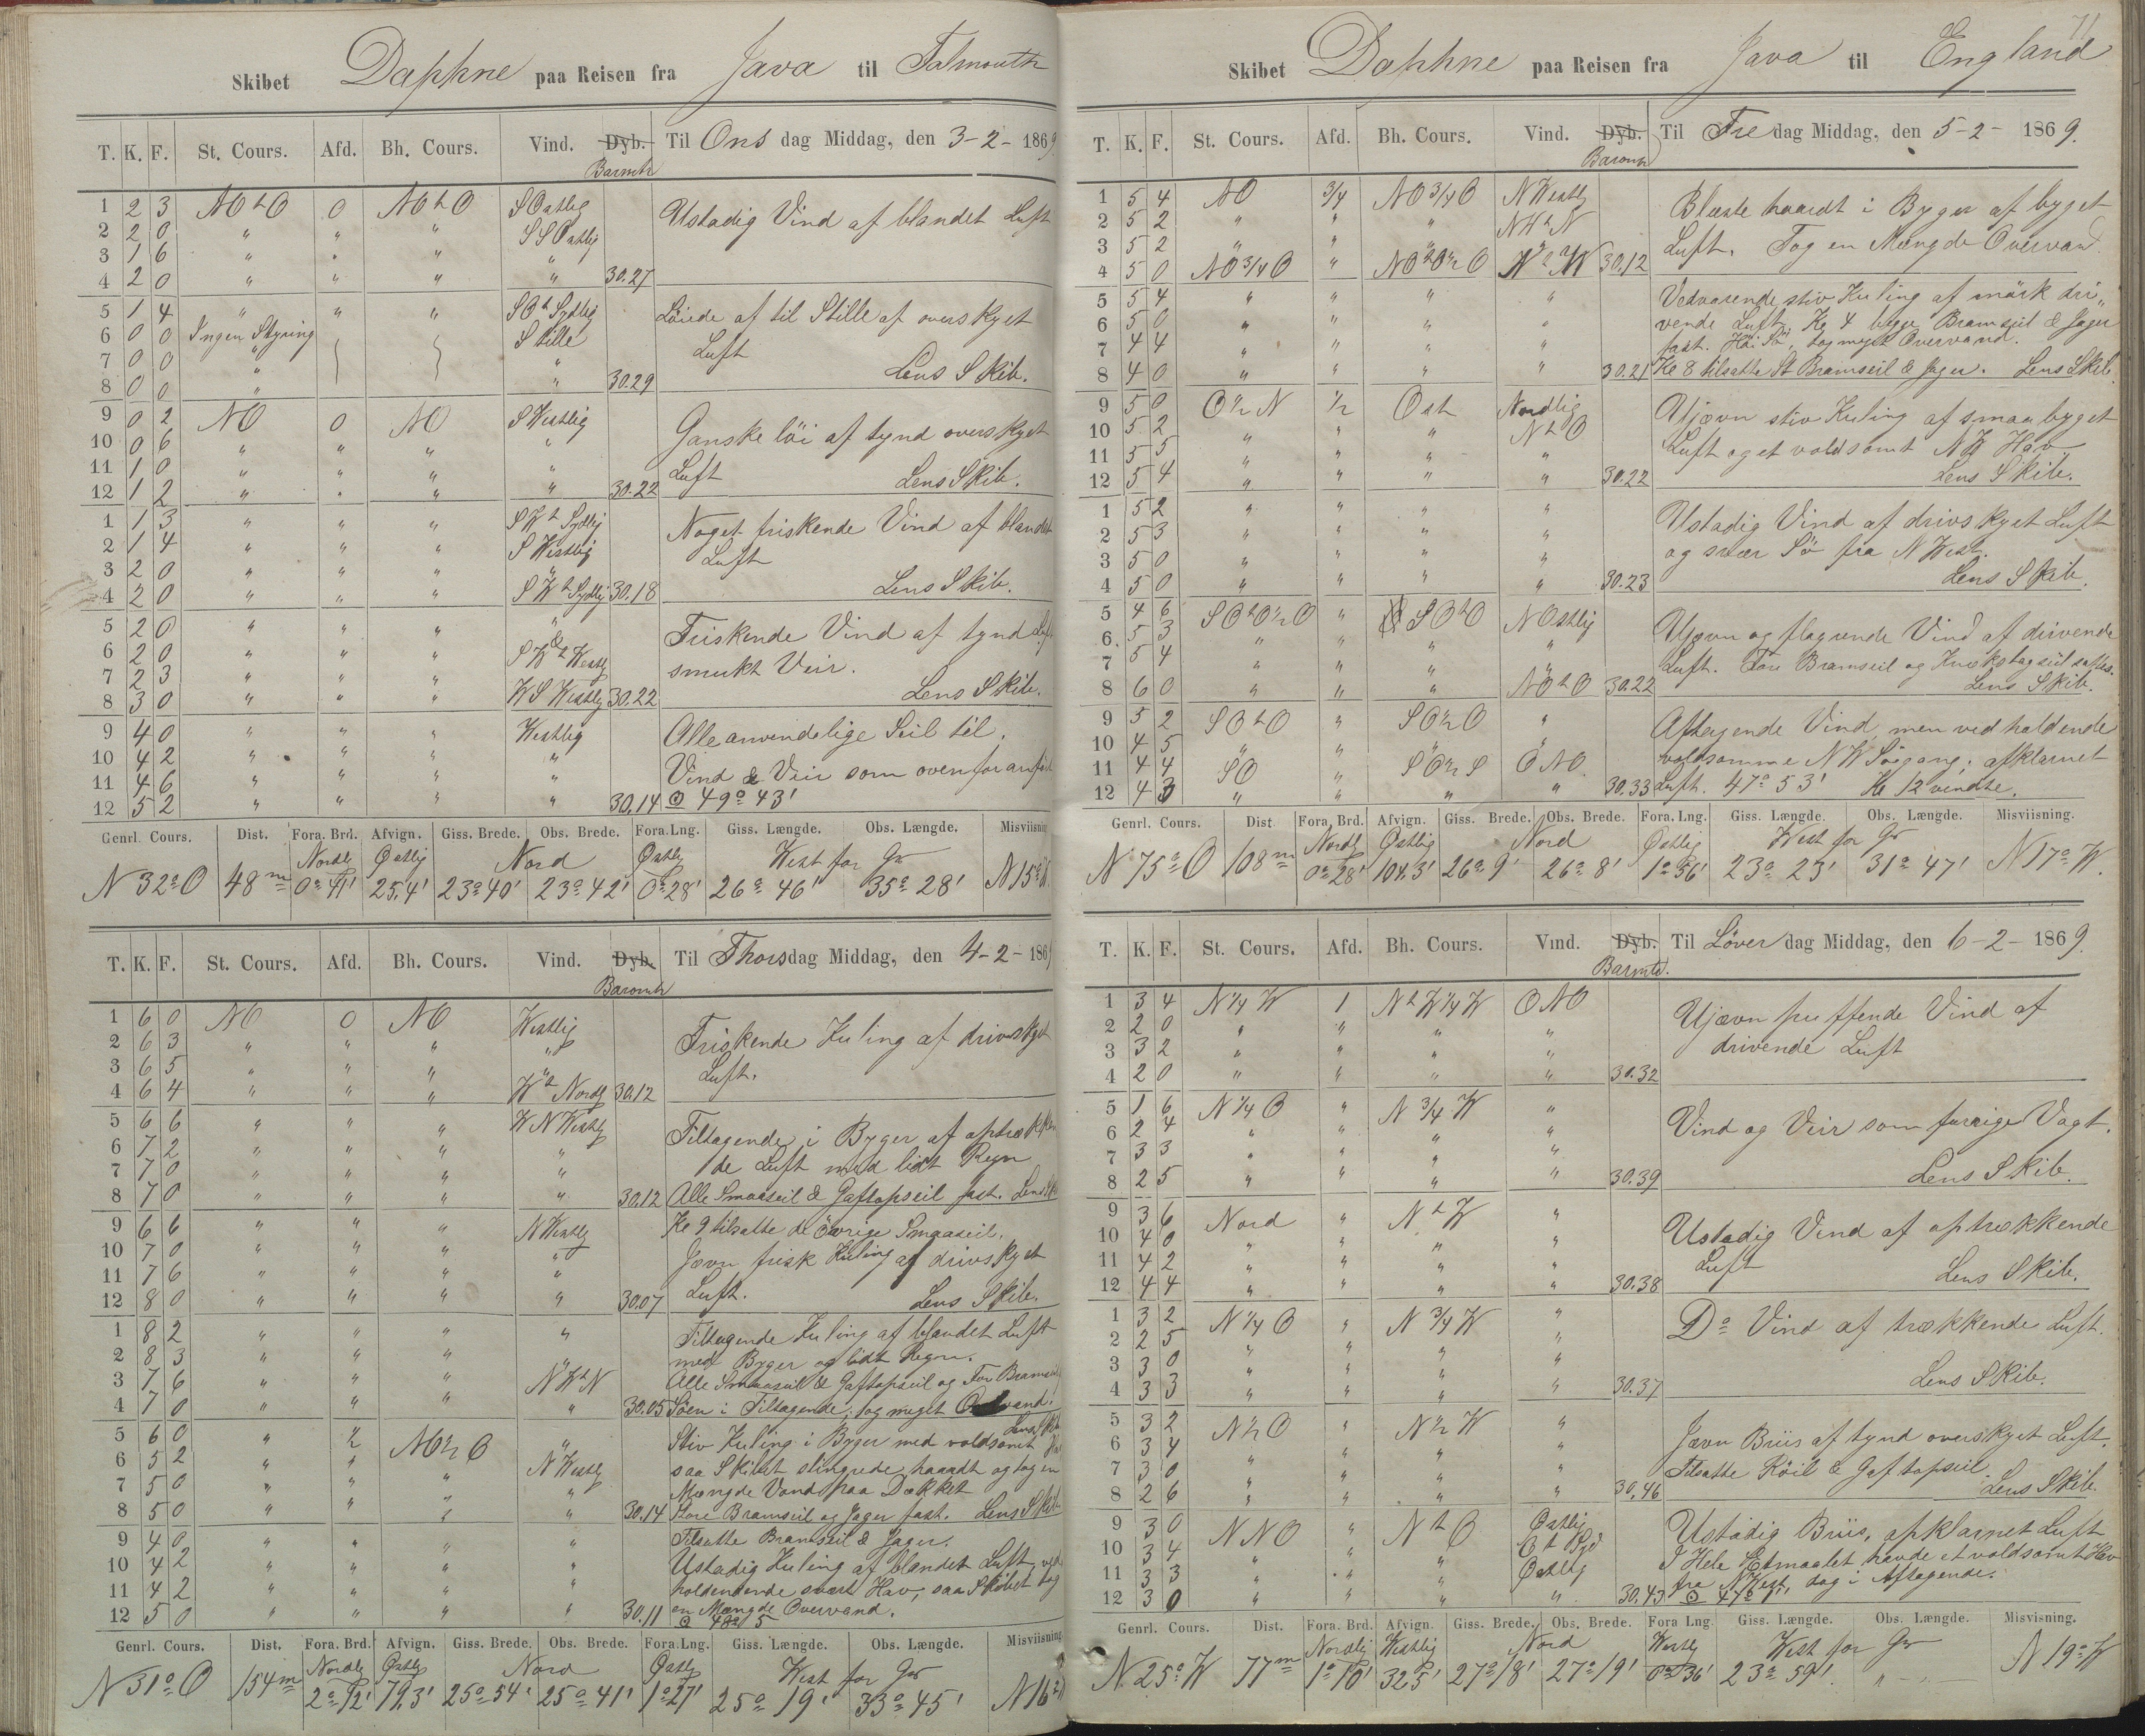 Skibet Daphne paa Reisen fra Java til Falmouth
T. K. F. St. Cours. Afd. Bh. Cours. Vind. Dyb. Til Ons dag Middag, den 3-2-1869
Barmtr
1 2 3 NO t O 0 NO t O SOstlig Ustadig Vind af blandet Luft
2 2 0 " " " SSOstlig
3 1 6 " " " "
4 2 0 " " " " 30.27
5 1 4 " " " SO t Sydlig Löiede af til Stille af overskyet
6 0 0 Ingen Styring Stille Luft
7 0 0 " "
8 0 0 " " 30.29 Lens Skib.
9 0 2 NO 0 NO SWestlig Ganske löi af tynd overskyet
10 0 6 " " " "
11 1 0 " " " " Luft
12 1 2 " " " " 30.22 Lens Skib.
1 1 3 " " " SW t Sydlig Noget friskende Vind af blandet
2 1 4 " " " SWestlig Luft
3 2 0 " " " "
4 2 0 " " " SW t Sydlig 30.18 Lens Skib.
5 2 0 " " " " Friskende Vind af tynd Luft
6 2 0 " " " SW t Westlg smukt Veir.
7 2 3 " " "
8 3 0 " " " WSWestlig 30.22 Lens Skib.
9 4 0 " " " Westlig Alle anvendelige Seil til.
10 4 2 " " " "
11 4 6 " " " " Vind & Veir som ovenfor anført
12 5 2 " " " " 30.14 ⊙ 49° 43'
Genrl. Cours. Dist. Fora. Brd. Afvign. Giss. Brede. Obs. Brede. Fora. Lng. Giss. Længde. Obs. Længde. Misviisning
Nordlg Østlig Nord Østlg West for Gr
N 32° O 48 m 0° 41' 25,4' 23° 40' 23° 42' 0° 28' 26° 46' 35° 28' N 15°
T. K. F. St. Cours. Afd. Bh. Cours. Vind. Dyb. Til Thorsdag Middag, den 4-2-186
Baromtr
1 6 0 NO 0 NO Westlig Friskende Kuling af drivskyet
2 6 3 " " " "
3 6 5 " " " " Luft.
4 6 4 " " " W t Nordlg 30.12
5 6 6 " " " WNWestlg Tiltagende i Byger af optrækken
6 7 2 " " " "
7 7 0 " " " " de Luft med lidt Regn
8 7 0 " " " " 30.12 Alle Smaaseil & Gaftopseil fast. Lens
9 6 6 " " " NWestlg Kl 9 tilsatte de övrige Smaaseil.
10 7 0 " " " " Jævn frisk Kuling af drivskyet
11 7 6 " " " "
12 8 0 " " " " 30.07 Luft. Lens Skib.
1 8 2 " " " " Tiltagende Kuling af blandet Luft
2 8 3 " " " " med Byger og lidt Regn.
3 7 6 " " " NW t N Alle Smaaseil & Gaftopseil og For Bramseil
4 7 0 " " " " 30.05 Söen i Tiltagende; tog meget Overvand.
Lens Skib
5 6 0 " ½ NO ½ O " Stiv Kuling i Byger med voldsomt
6 5 2 " " " NWestlg saa Skibet slingrede haardt og tog en
7 5 0 " " " " Mængde Vand paa Dækket
8 5 0 " " " " 30.14 Store Bramseil og Jager fast. Lens Skib
9 4 0 " " " " Tilsatte Bramseil & Jager.
10 4 2 " " " " Ustadig Kuling af blandet Luft, ved
11 4 2 " " " " holdendende svært Hav, saa Skibet tog
12 5 0 " " " " 30.11 en Mængde Overvand.
Genrl. Cours. Dist. Fora. Brd. Afvign. Giss. Brede. Obs. Brede. Fora. Lng. Giss. Længde. Obs. Længde. Misviisning
Nordlg Østlg Nord Østlg West for Gr
N 51° O 154 m 2° 12' 72,3' 25° 54' 25° 41' 1° 27' 25° 19' 33° 45' N 16°
71
Skibet Daphne paa Reisen fra Java til England
T. K. F. St. Cours. Afd. Bh. Cours. Vind. Dyb. Til Fre dag Middag, den 5-2-1869.
Baromtr
1 5 4 NO ¾ NO ¾ O NWestlig Blæste haardt i Byger af byget
2 5 2 " " " NW t N
3 5 2 " " " " Luft. Tog en Mængde Overvand
4 5 0 NO ¾ O " NO t O ½ O N t W 30.12
5 5 4 " " " " Vedvarende stiv Kuling af mörk dri„
6 5 0 " " " " vende Luft. Kl 4 begge Bramseil & Jager
7 4 4 " " " " fast. Höi Sö, tog meget Overvand.
8 4 0 " " " " 30.21 Kl 8 tilsatte St Bramseil & Jager. Lens Skib.
9 5 0 O ½ N ½ Ost Nordlig Ujævn stiv Kuling af smaabyget
10 5 2 " " " N t O
11 5 5 " " " " Luft og et voldsomt NW Hav
12 5 4 " " " " 30.22 Lens Skib.
1 5 2 " " " " Ustadig Vind af drivskyet Luft
2 5 3 " " " " og svær Sö fra NWest.
3 5 0 " " " "
4 5 0 " " " " 30.23 Lens Skib.
5 4 6 SO t O ½ O " SO t O NOstlig Ujævn og flagvende Vind af drivende
6 5 3 " " " "
7 5 4 " " " " Luft. Fore Bramseil og Krokstagseil sattes.
8 6 0 " " " NO t O 30.22 Lens Skib.
9 5 2 SO t O " SO ½ O " Aftagende Vind, men vedholdende
10 4 5 " " " " voldsomme NW Söegang; afklarnet
11 4 4 SO " SO ½ S ONO
12 4 3 " " " " 30.33 Luft. 47° 53' Kl 12 vendte.
Genrl. Cours. Dist Fora. Brd. Afvign. Giss. Brede. Obs. Brede. Fora. Lng. Giss. Længde. Obs. Længde. Misviisning.
Nordl Østlig Nord Østlig West for Gr
N 75° O 108 m 0° 28' 104.3' 26° 9' 26° 8' 1° 56' 23° 23' 31° 47' N 17° W.
T. K. F. St. Cours. Afd. Bh. Cours. Vind. Dyb. Til Löver dag Middag, den 6-2-1869.
Barmtr.
1 3 4 N ¼ W 1 N t W ¼ W ONO Ujævn puffende Vind af
2 2 0 " " " "
3 3 2 " " " " drivende Luft
4 2 0 " " " " 30.32
5 1 6 N ¼ O " N ¾ W " Vind og Veir som forrige Vagt.
6 2 4 " " " "
7 3 3 " " " "
8 2 5 " " " " 30.39 Lens Skib.
9 3 6 Nord " N t W " Ustadig Vind af optrækkende
10 4 0 " " " "
11 4 2 " " " " Luft
12 4 4 " " " " 30.38 Lens Skib.
1 3 2 N ¼ O " N ¾ W " D° Vind af trækkende Luft.
2 2 5 " " " "
3 3 0 " " " "
4 3 3 " " " " 30.37 Lens Skib.
5 3 2 N ½ O " N ½ W " Jævn Briis af tynd overskyet Luft.
6 3 4 " " " "
7 3 0 " " " " Tilsatte Röil & Gaftopseil
8 2 6 " " " " 30.46 Lens Skib.
9 3 0 NNO " N t O Østlig Ustadig Briis, afklarnet Luft
10 3 4 " " " O t Syd I Hele Etmaalet havde et voldsomt Hav
11 3 3 " " " Østlig fra NWest, dog i Aftagende.
12 3 0 " " " " 30.43 ⊙ 47°
Genrl. Cours. Dist. Fora. Brd. Afvign. Giss. Brede. Obs. Brede. Fora Lng. Giss. Længde. Obs. Længde. Misvisning.
Nordlig Westlig Nord Westlg West for Gr
N 25° W 77 m 1° 10' 32,5' 27° 18' 27° 19' 0° 36' 23° 59' " N 19° W